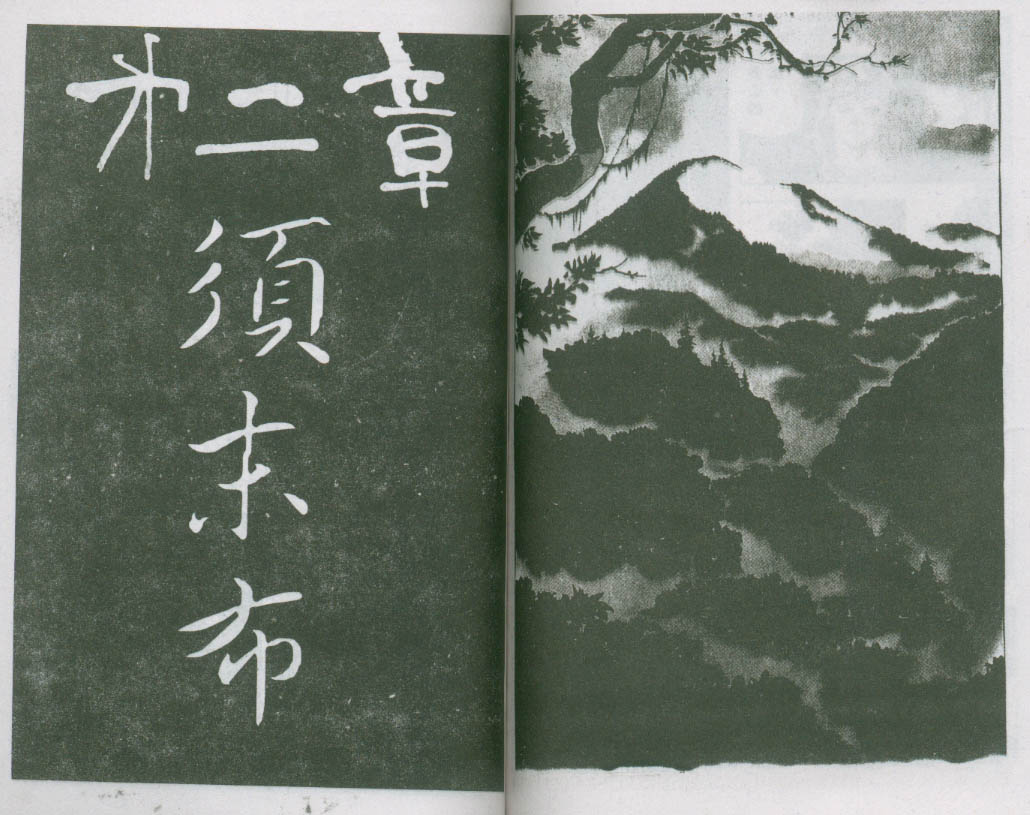 第二章
須末布